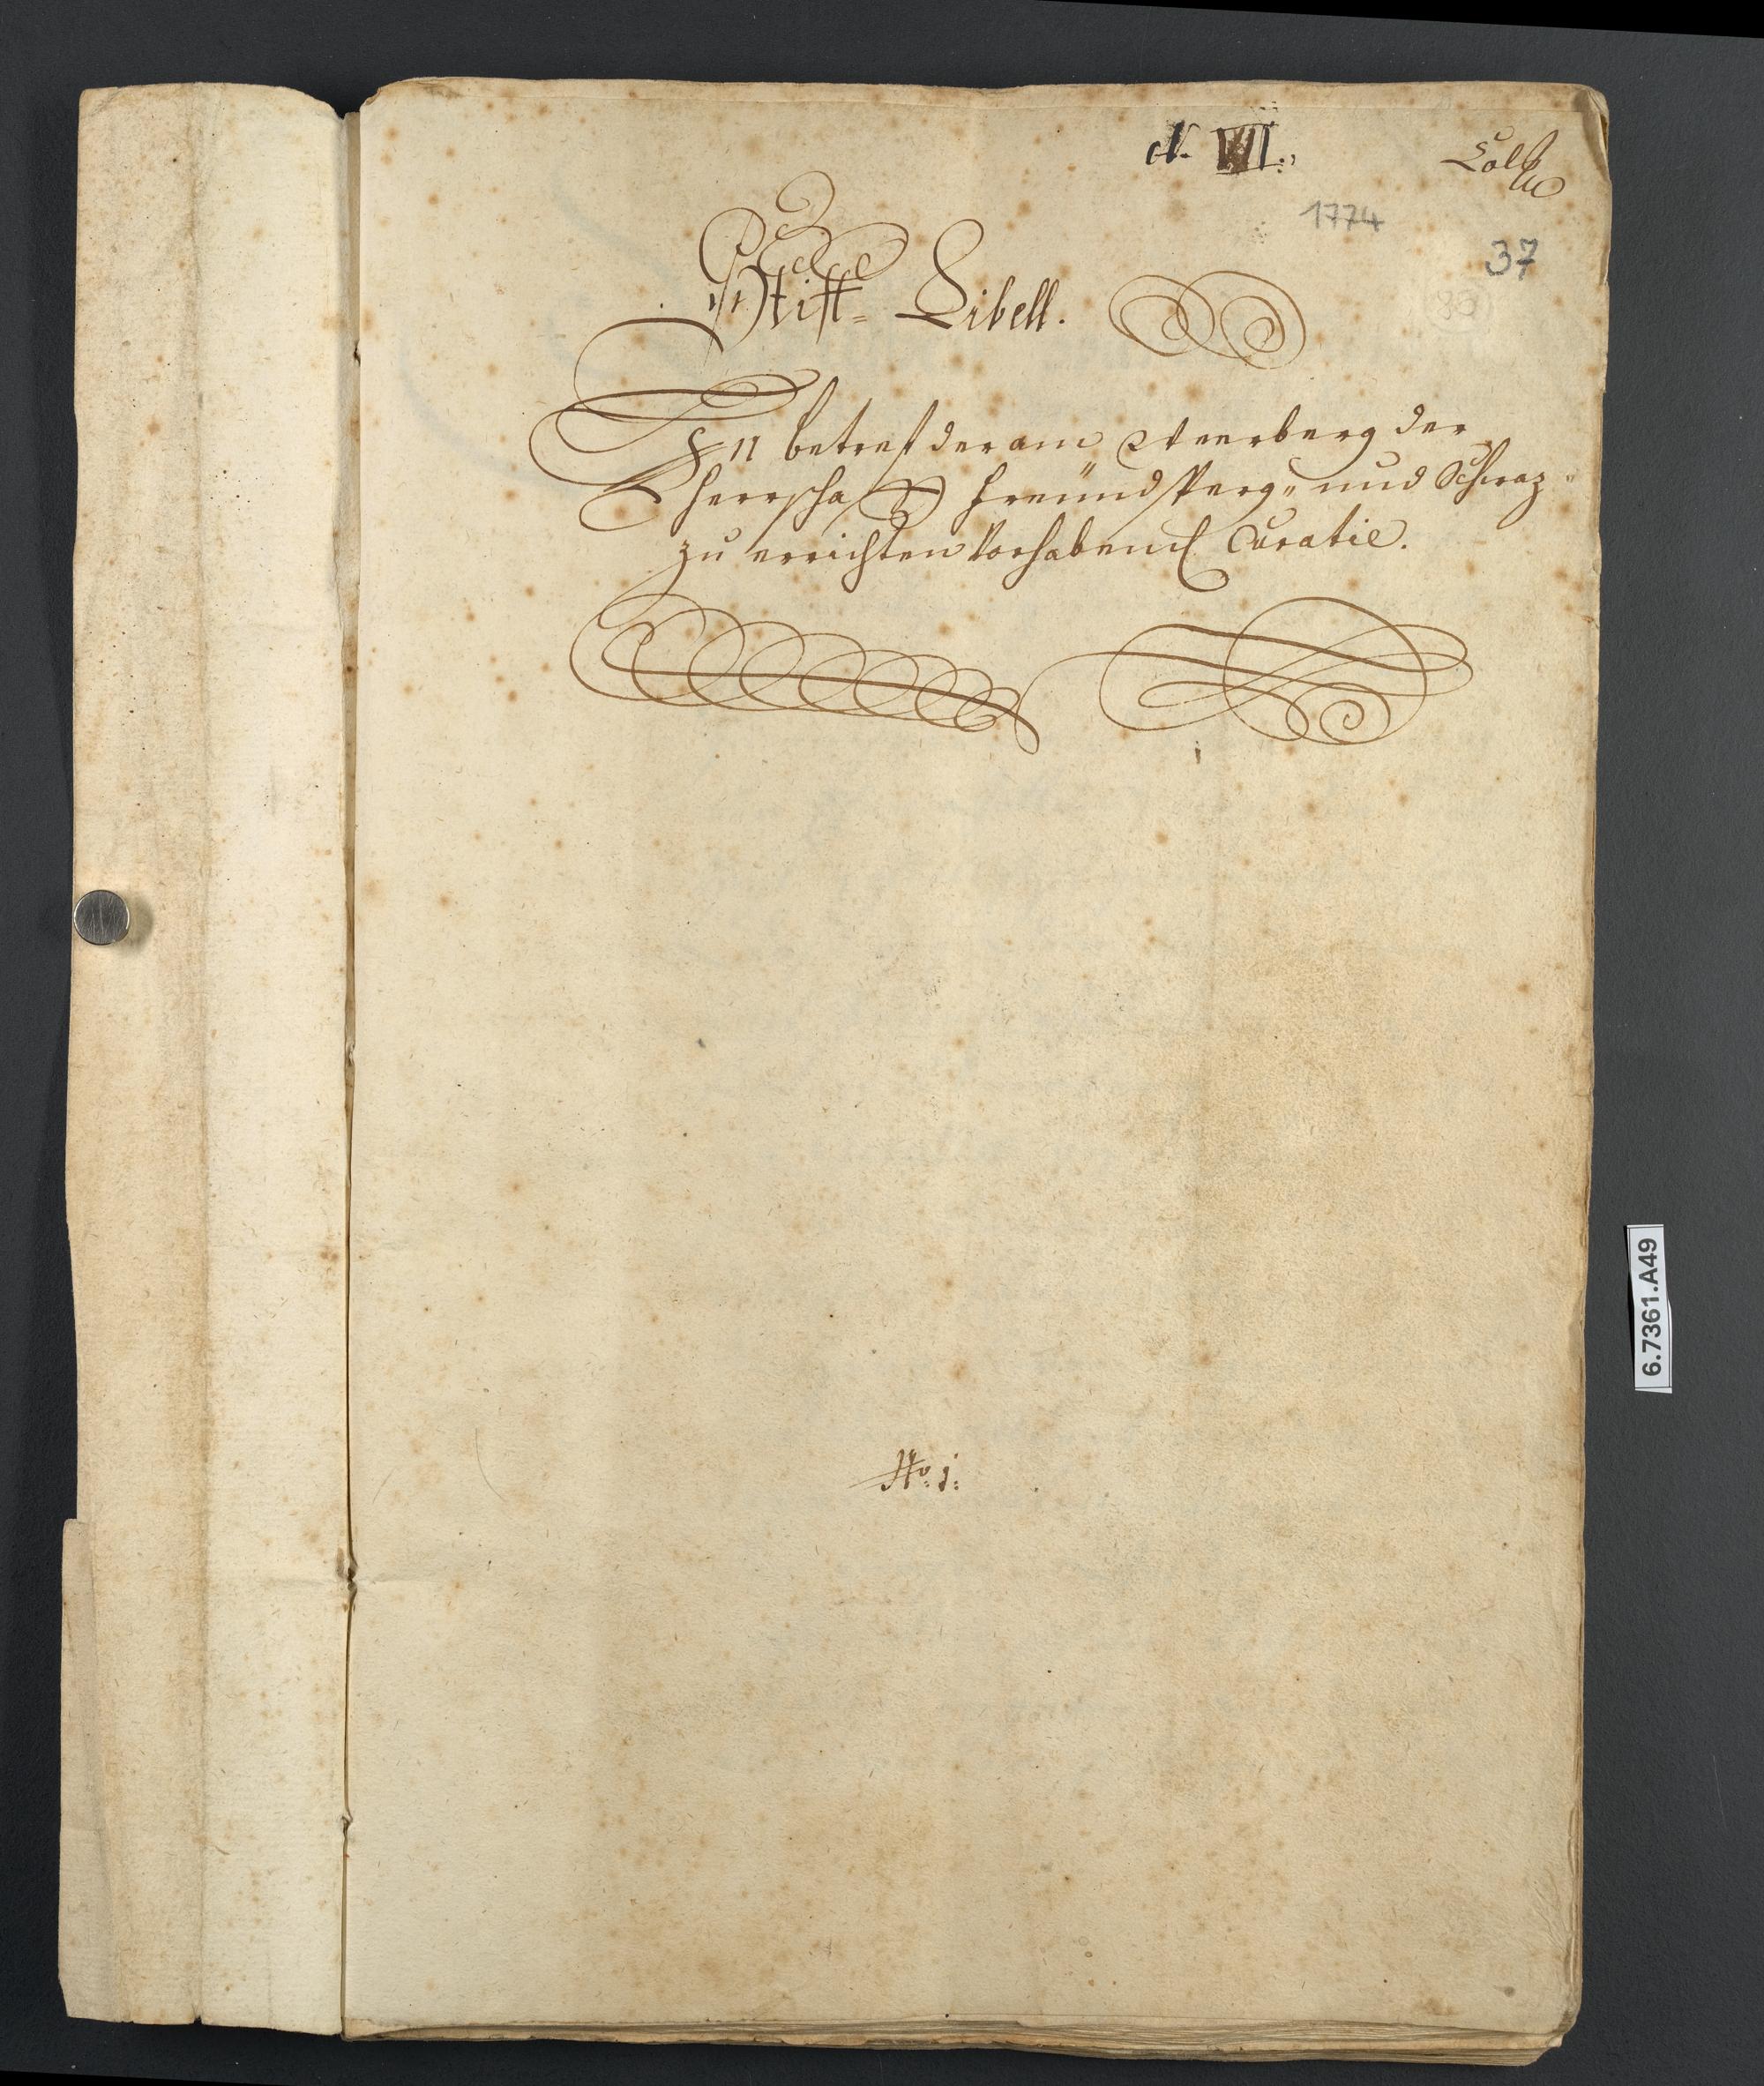 N. VII.
1774
37
Stift= Libell.
In betref der am Weerberg der
Herrschafft Freündsperg„ und Schwaz
zu errichten vorhabend Curatie.
No: 1:
6.7361.A49